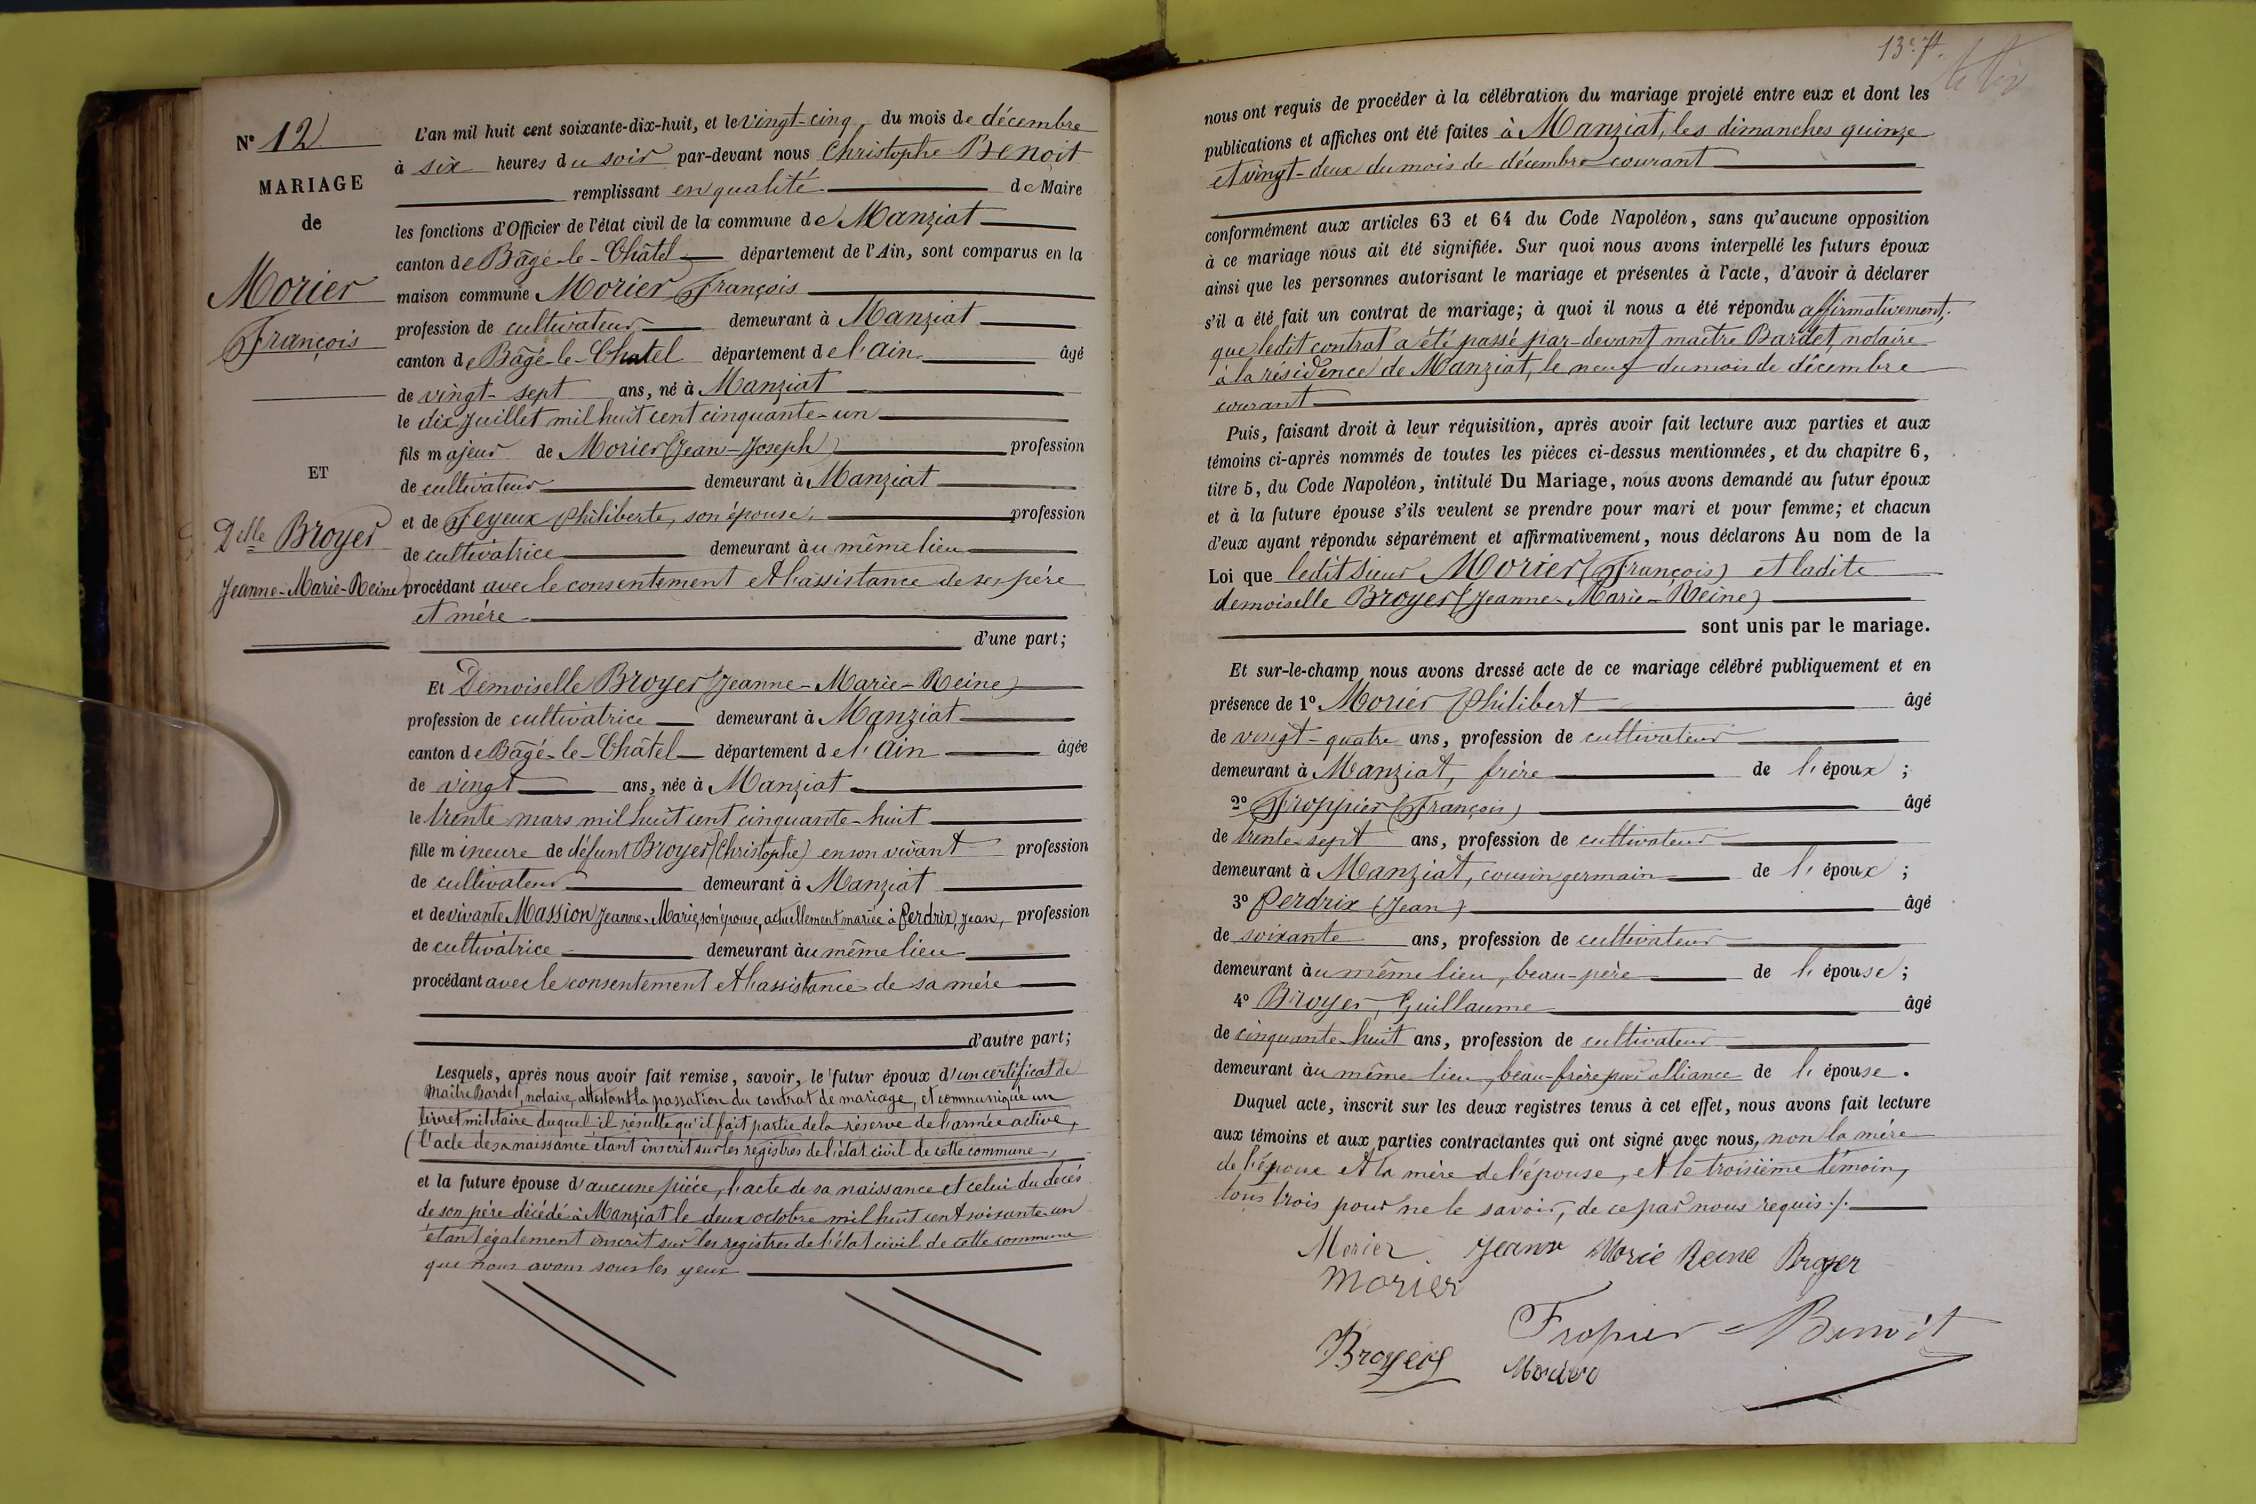 N° 12
MARIAGE
de
Morier
François
ET
Delle Broyer
Jeanne-Marie-Reine
L'an mil huit cent soixante-dix-huit, et le vingt-cinq du mois de décembre
à six heures du soir par-devant nous Christophe Benoit
remplissant en qualité de Maire
les fonctions d'Officier de l'état civil de la commune de Manziat
canton de Bâgé-le-Châtel département de l'Ain, sont comparus en la
maison commune Morier François
profession de cultivateur demeurant à Manziat
canton de Bâgé-le-Chatel département de l'Ain âgé
de vingt-sept ans, né à Manziat
le dix Juillet mil huit cent cinquante-un
fils majeur de Morier (Jean-Joseph) profession
de cultivateur demeurant à Manziat
et de Feyeux Philiberte, son épouse, profession
de cultivatrice demeurant au même lieu
procédant avec le consentement et l'assistance de ses père
et mère
d'une part;
Et Demoiselle Broyer (Jeanne-Marie-Reine)
profession de cultivatrice demeurant à Manziat
canton de Bâgé-le-Châtel département de l'Ain âgée
de vingt ans, née à Manziat
le trente mars mil huit cent cinquante-huit
fille mineure de défunt Broyer (Christophe) en son vivant profession
de cultivateur demeurant à Manziat
et de vivante Massion Jeanne-Marie, son épouse, actuellement mariée à Perdrix, Jean, profession
de cultivatrice demeurant au même lieu
procédant avec le consentement et l'assistance de sa mère
d'autre part;
Lesquels, après nous avoir fait remise, savoir, le futur époux d'un certificat de
Maître Bardet, notaire, attestant la passation du contrat de mariage, et communiqué un
livret militaire duquel il résulte qu'il fait partie de la réserve de l'armée active,
(l'acte de sa naissance étant inscrit sur les registres de l'état civil de cette commune,
et la future épouse d'aucune pièce, l'acte de sa naissance et celui du décès
de son père décédé à Manziat le deux octobre mil huit cent soixante-un
étant également inscrit sur les registres de l'état civil de cette commune
que nous avons sous les yeux
13e
nous ont requis de procéder à la célébration du mariage projeté entre eux et dont les
publications et affiches ont été faites à Manziat, les dimanches quinze
et vingt-deux du mois de décembre courant
conformément aux articles 63 et 64 du Code Napoléon, sans qu'aucune opposition
à ce mariage nous ait été signifiée. Sur quoi nous avons interpellé les futurs époux
ainsi que les personnes autorisant le mariage et présentes à l'acte, d'avoir à déclarer
s'il a été fait un contrat de mariage; à quoi il nous a été répondu affirmativement,
que ledit contrat a été passé par-devant maître Bardet, notaire
à la résidence de Manziat, le neuf du mois de décembre
courant
Puis, faisant droit à leur réquisition, après avoir fait lecture aux parties et aux
témoins ci-après nommés de toutes les pièces ci-dessus mentionnées, et du chapitre 6,
titre 5, du Code Napoléon, intitulé Du Mariage, nous avons demandé au futur époux
et à la future épouse s'ils veulent se prendre pour mari et pour femme; et chacun
d'eux ayant répondu séparément et affirmativement, nous déclarons Au nom de la
Loi que ledit Sieur Morier (François) et ladite
demoiselle Broyer (Jeanne-Marie-Reine)
sont unis par le mariage.
Et sur-le-champ nous avons dressé acte de ce mariage célébré publiquement et en
présence de 1° Morier Philibert âgé
de vingt-quatre ans, profession de cultivateur
demeurant à Manziat, frère de l'époux;
2° Froppier (François) âgé
de trente-sept ans, profession de cultivateur
demeurant à Manziat, cousin germain de l'époux;
3° Perdrix (Jean) âgé
de soixante ans, profession de cultivateur
demeurant au même lieu, beau-père de l'épouse;
4° Broyer, Guillaume âgé
de cinquante-huit ans, profession de cultivateur
demeurant au même lieu, beau-frère par alliance de l'épouse.
Duquel acte, inscrit sur les deux registres tenus à cet effet, nous avons fait lecture
aux témoins et aux parties contractantes qui ont signé avec nous, non la mère
de l'époux et la mère de l'épouse, et le troisième témoin,
tous trois pour ne le savoir, de ce par nous requis ./.
Morier Jeanne Marie Reine Broyer
Morier
Fropier Benoit
Broyer Morier